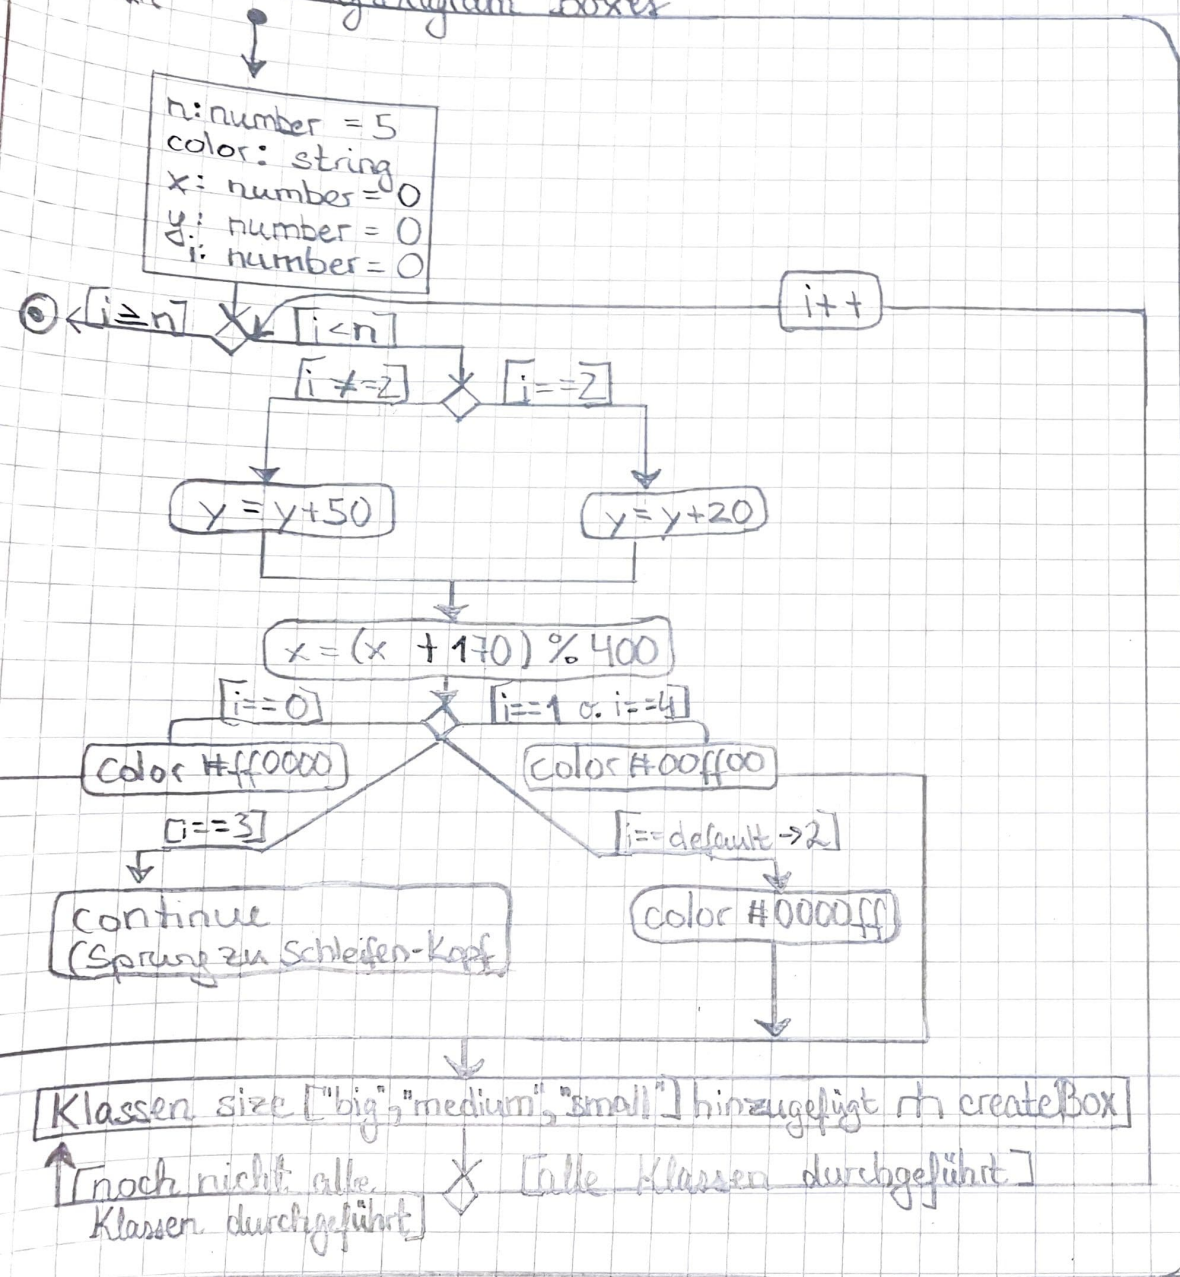 boxes
n: number = 5
color: string
x: number = 0
y: number = 0
i: number = 0
i++
[i≥n]
[i<n]
[i ≠=2]
[i==2]
y = y+50
y = y+20
x = (x + 170) % 400
[i==0]
[i==1 o. i==4]
color #ff0000
color #00ff00
[i==3]
[i==default →2]
continue
(Sprung zu Schleifen-Kopf
color #0000ff
Klassen size ["big", "medium", "small"] hinzugefügt createBox
[noch nicht alle
Klassen durchgeführt]
[alle Klassen durchgeführt]